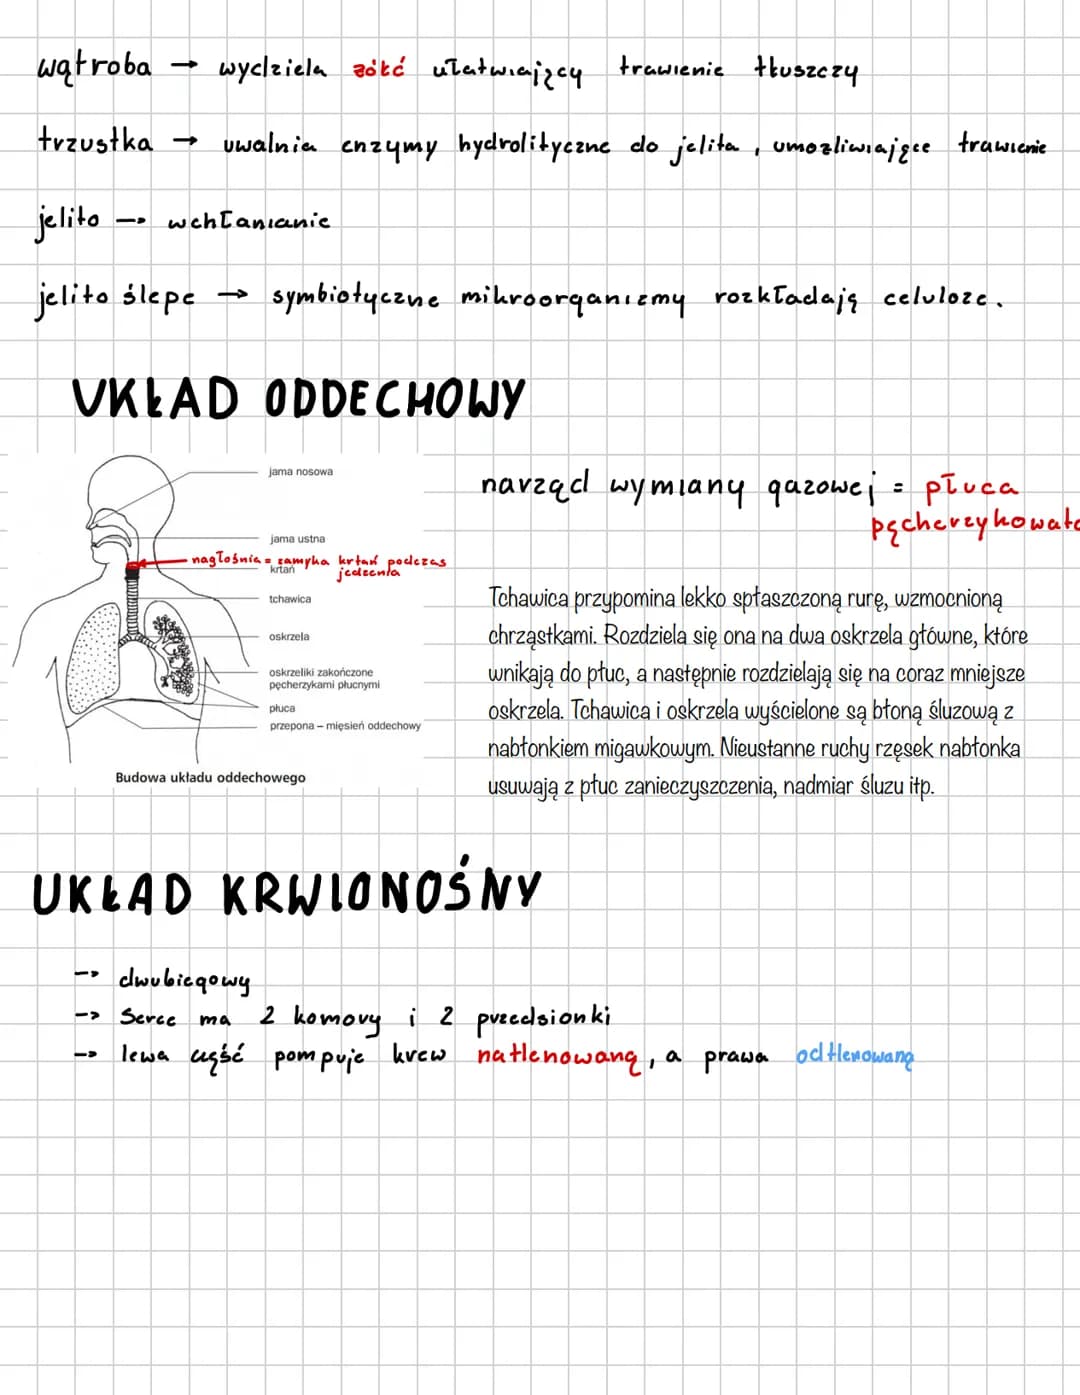 wątroba → wydziela żółć ułatwiający trawienie tłuszczy
trzustka → uwalnia enzymy hydrolityczne do jelita, umożliwiające trawienie
jelito → wchłanianie
jelito ślepe → symbiotyczne mikroorganizmy rozkładają celuloze.
UKŁAD ODDECHOWY
jama nosowa
jama ustna
nagłośnia = zamyka krtań podczas jedzenia
krtań
tchawica
oskrzela
oskrzeliki zakończone
pęcherzykami płucnymi
płuca
przepona – mięsień oddechowy
Budowa układu oddechowego
narząd wymiany gazowej = płuca
pęcherzykowate
Tchawica przypomina lekko spłaszczoną rurę, wzmocnioną
chrząstkami. Rozdziela się ona na dwa oskrzela główne, które
wnikają do płuc, a następnie rozdzielają się na coraz mniejsze
oskrzela. Tchawica i oskrzela wyścielone są błoną śluzową z
nabłonkiem migawkowym. Nieustanne ruchy rzęsek nabłonka
usuwają z płuc zanieczyszczenia, nadmiar śluzu itp.
UKŁAD KRWIONOŚNY
→ dwubiegowy
→ Serce ma 2 komory i 2 przedsionki
→ lewa część pompuje krew natlenowaną, a prawa odtlenowaną